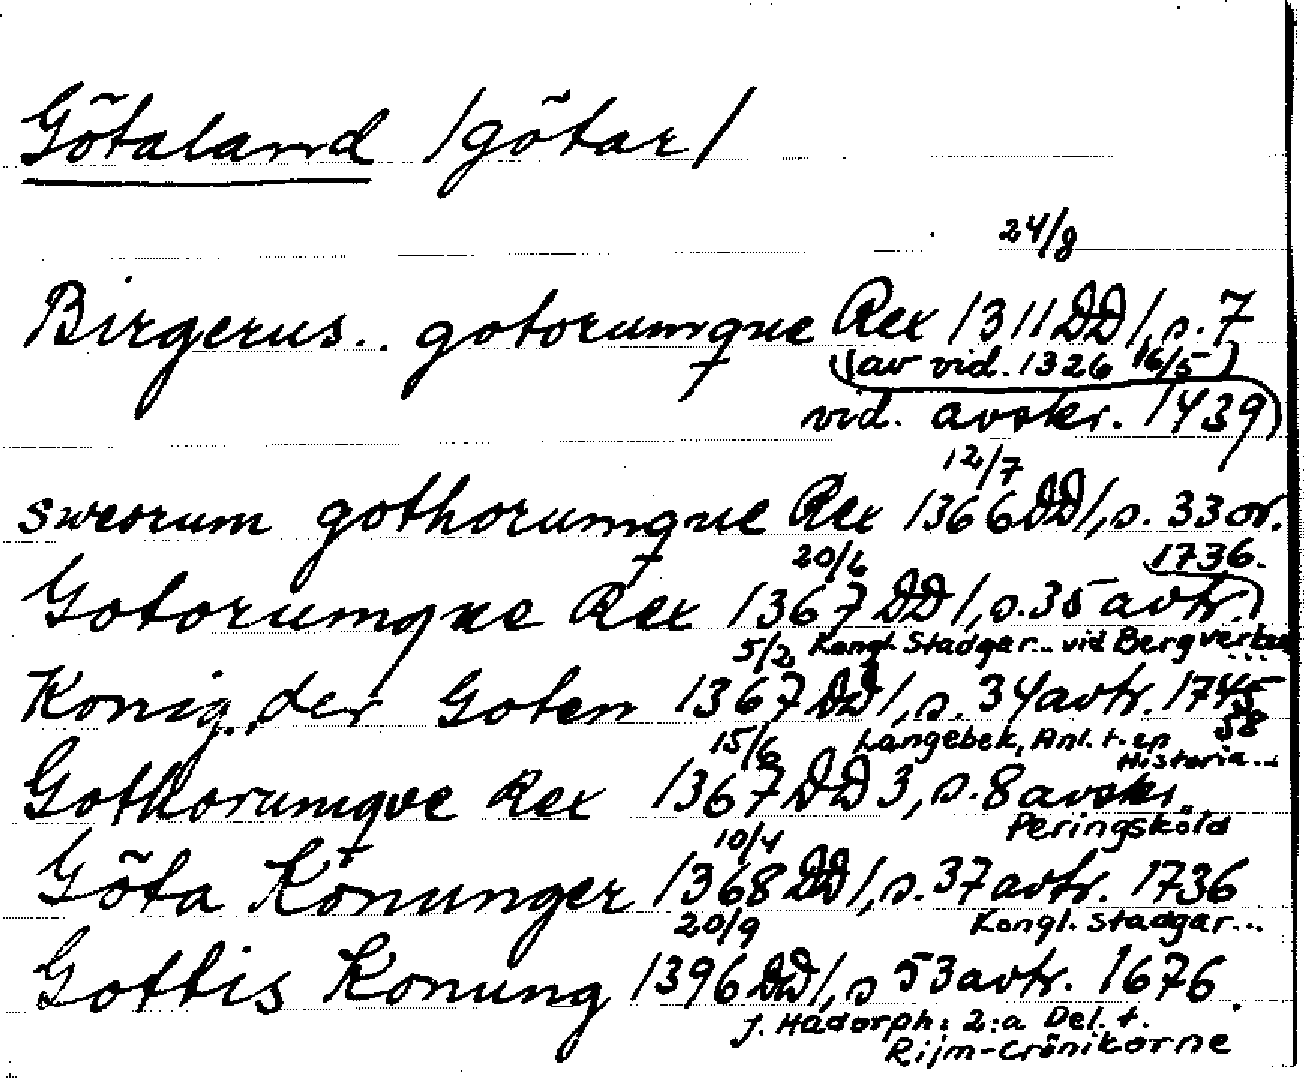 Götaland /götar/
24/8
Birgerus.. gotorumque Rex 1311 DD1, s. 7
(av vid. 1326 16/5)
vid. avskr. 1439)
12/7
sweorum gothorumque Rex 1366 DD1, s. 33 or.
20/6 1736.
Gotorumque Rex 1367 DD1, s. 35 avtr.)
5/2 Kongl. Stadgar... vid Bergverken...
Konig der Goten 1367 DD1, s. 34 avtr. 1745
58
15/6 Langebek, Anl. t. en
Historia...
Gothorumqve Rex 1367 DD3, s. 8 avskr.
Peringsköld
10/4
Göta Konunger 1368 DD1, s. 37 avtr. 1736
20/9 Kongl. Stadgar...
Gottis Konung 1396 DD1, s 53 avtr. 1676.
J. Hadorph: 2:a Del. t.
Rijm-Crönikorne